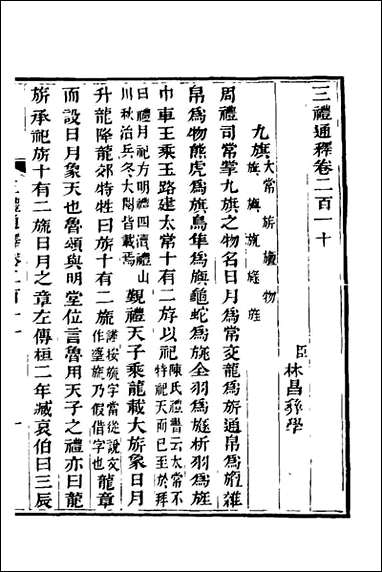 三禮通釋卷二百一十
臣林昌彝學
九旗大常旂旜物
旗旟旐旞旌
周禮司常掌九旗之物名日月爲常交龍爲旂通帛爲旜雜
帛爲物熊虎爲旗鳥隼爲旟龜蛇爲旐全羽爲旞析羽爲旌
巾車王乘玉路建太常十有二斿以祀陳氏禮書云太常不
特祀天而已至於拜
日禮月祀方明禮四瀆禮山
川秋治兵冬大閱皆載焉覲禮天子乘龍載大旂象日月
升龍降龍郊特牲曰旂十有二旒諸按旒字當從說文
作瑬旒乃假借字也龍章
而設日月象天也魯頌與明堂位言魯用天子之禮亦曰龍
旂承祀旂十有二旒日月之章左傳桓二年臧哀伯曰三辰
三禮通釋卷二百一十
一